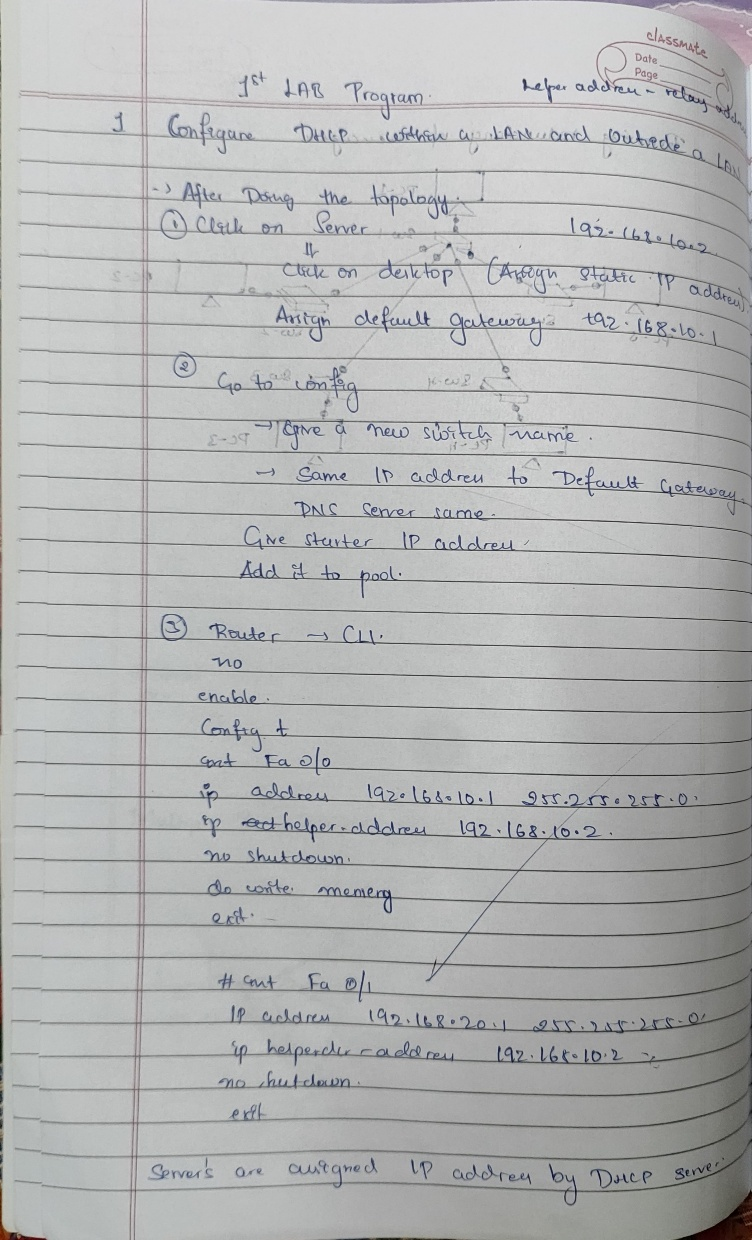 classmate
Date
Page
1st LAB Program.
helper address - relay addr
1 Configure DHCP within a LAN and Outside a LAN
-> After Doing the topology.
① Click on Server 192.168.10.2
⇓
Click on desktop (Assign static IP address)
Assign default gateway 192.168.10.1
② Go to config
→ Give a new switch name.
→ Same IP address to Default Gateway.
DNS server same.
Give starter IP address.
Add it to pool.
③ Router → CLI.
no
enable.
Config t
int Fa 0/0
ip address 192.168.10.1 255.255.255.0.
ip helper-address 192.168.10.2.
no shutdown.
do write memerg
exit.
# int Fa 0/1
IP address 192.168.20.1 255.255.255.0.
ip helperder-address 192.168.10.2
no shutdown.
exit
Server's are assigned IP address by DHCP server.